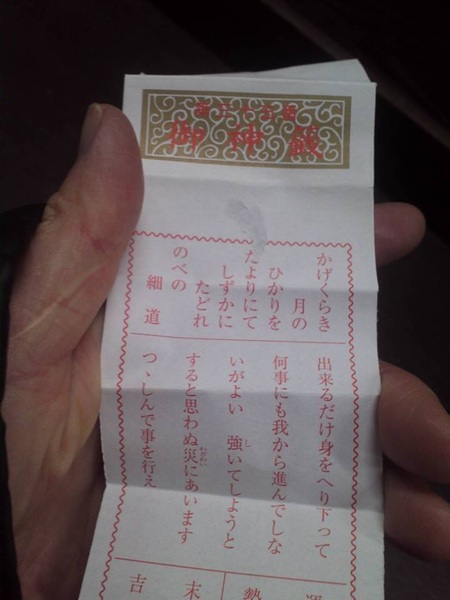 御神籤
かげくらき
月の
ひかりを
たよりにて
しずかに
たどれ
のべの
細道
出来るだけ身をへり下って
何事にも我から進んでしな
いがよい　強いてしようと
すると思わぬ災にあいます
つゝしんで事を行え
運
勢
末
吉